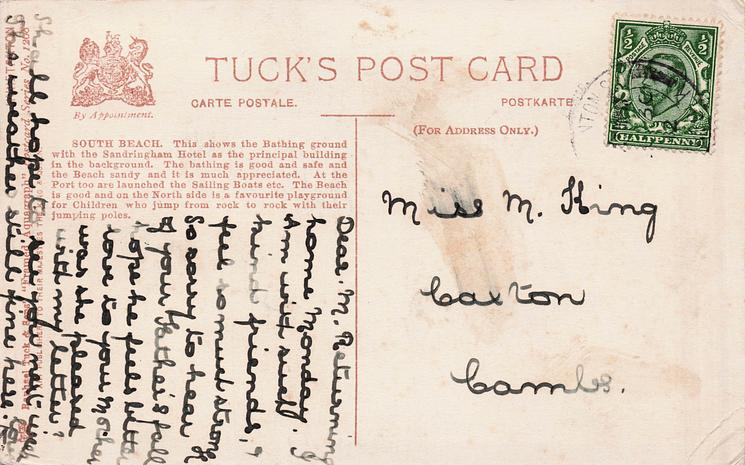 TUCK'S POST CARD
CARTE POSTALE.
POSTKARTE
By Appointment.
(FOR ADDRESS ONLY.)
SOUTH BEACH. This shows the Bathing ground
with the Sandringham Hotel as the principal building
in the background. The bathing is good and safe and
the Beach sandy and it is much appreciated. At the
Port too are launched the Sailing Boats etc. The Beach
is good and on the North side is a favourite playground
for Children who jump from rock to rock with their
jumping poles.
½ ½
POSTAGE REVENUE
HALFPENNY
Miss M. King
Caxton
Cambs.
Dear. M. Returning
home Monday. I
Am with such
kind friends, &
feel so much strong
So sorry to hear
of your Father's fall
hope he feels better
love to your Mother
was she pleased
with my letter?
Shall hope to see you next week
This weather still fine here.
Raphael Tuck & Sons' "Framed Aquagraph" Postcard Series No.